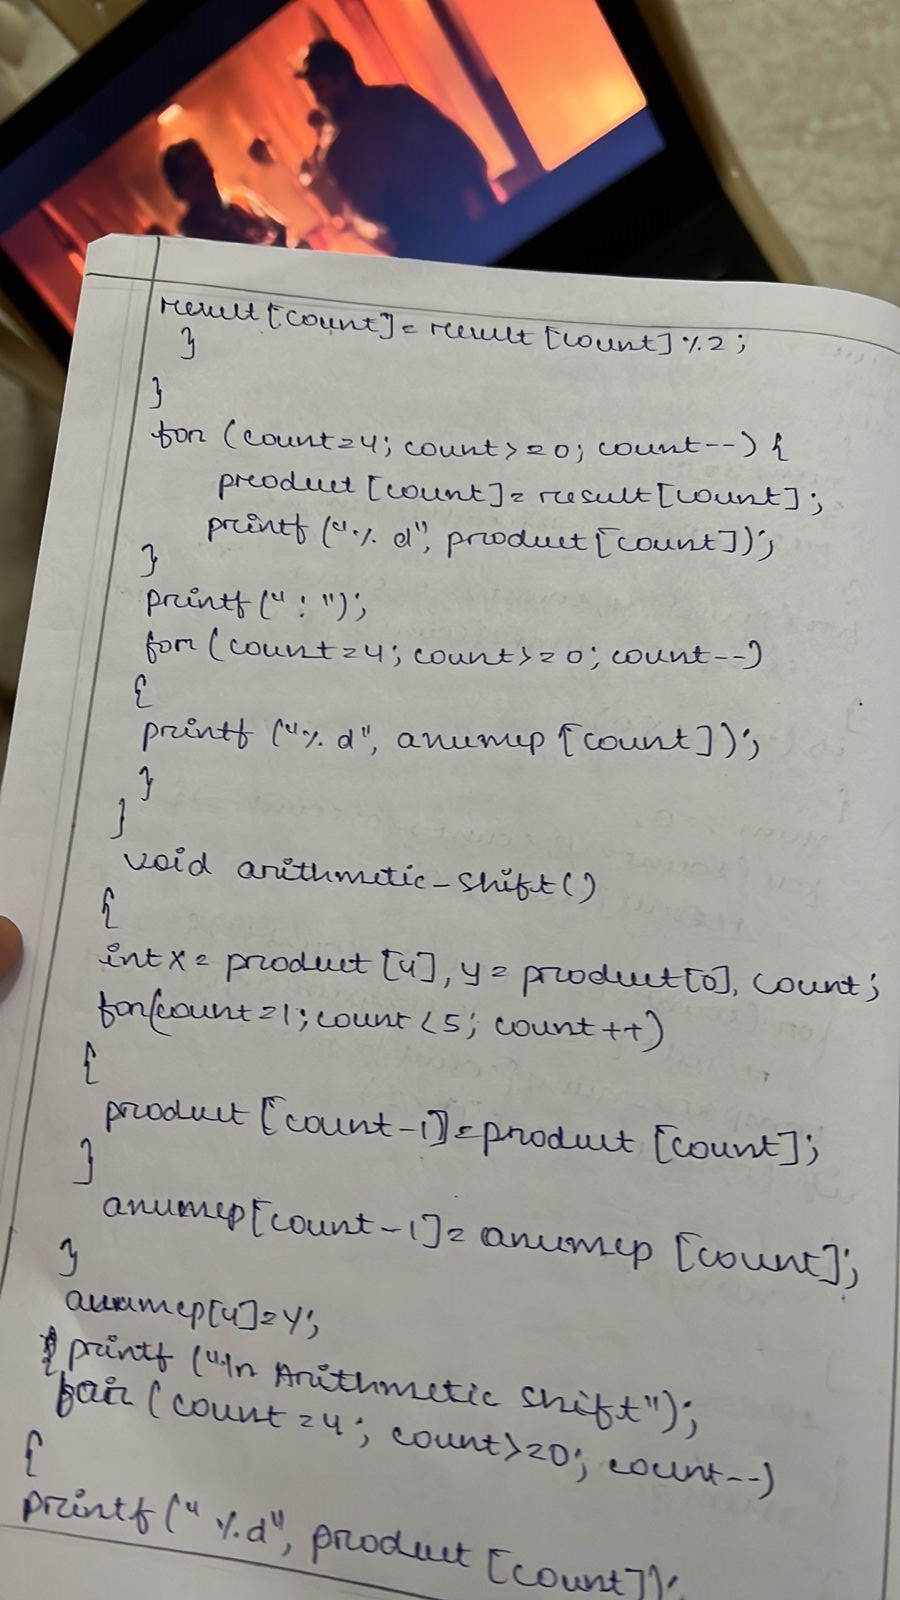 result[count]=result[count]%2;
}
}
for (count=4; count>=0; count--) {
product[count]=result[count];
printf("%d", product[count]);
}
printf(":");
for(count=4; count>=0; count--)
{
printf("%d", anumcp[count]);
}
}
void arithmetic-shift()
{
int x=product[4], y=product[0], count;
for(count=1; count<5; count++)
{
product[count-1]=product[count];
}
anumcp[count-1]=anumcp[count];
}
anumcp[4]=y;
printf("\n Arithmetic shift");
for (count=4; count>=0; count--)
{
printf("%d", product[count]);